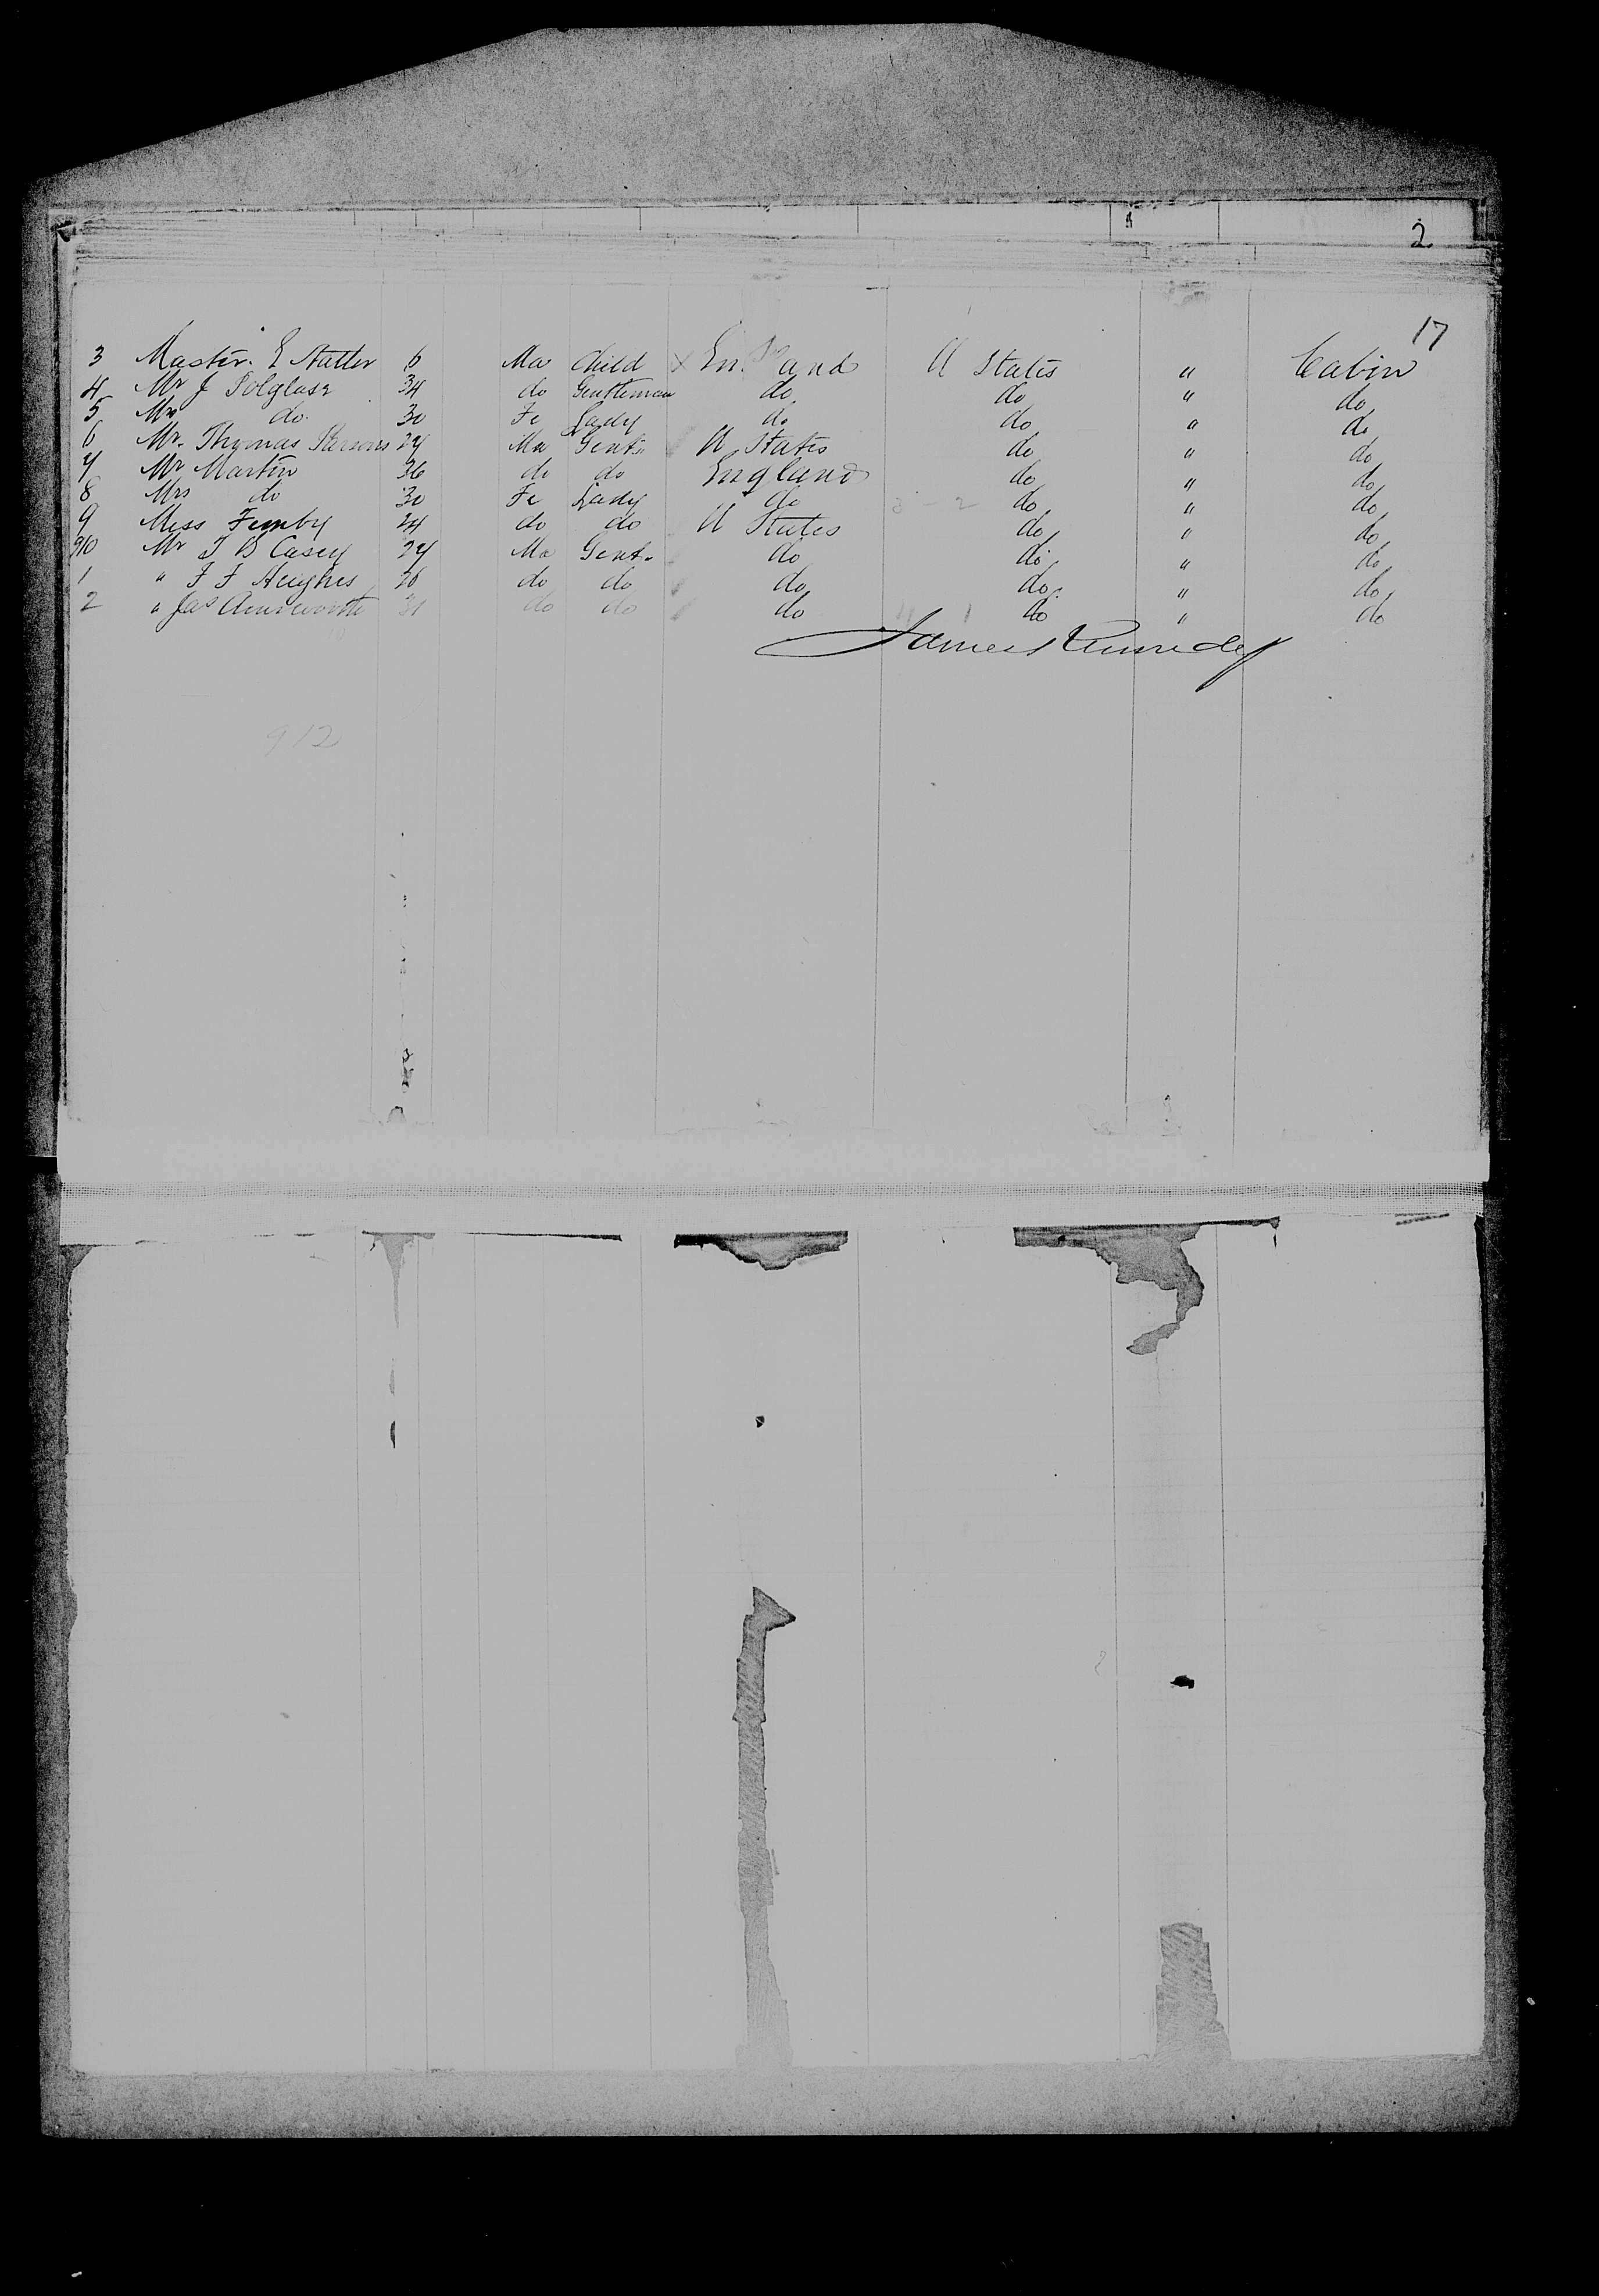 2
17
3 Master. E Statter 6 Ma Child X England U States " Cabin
4 Mr J Polglase 34 do Gentleman do U do " do
5 Mrs do 30 Fe Lady do do " do
6 Mr. Thomas Parsons 27 Ma Gent. U States do " do
7 Mr Martin 36 do do England do " do
8 Mrs do 30 Fe Lady do 3 - 2 do " do
9 Miss 24 do do U States do " do
910 Mr J B Casey 27 Ma Gent. do do " do
1 " F F Hughes 26 do do do do " do
2 " Jas Ainsworth 31 do do do 4 1 do " do
James Kennedy
912